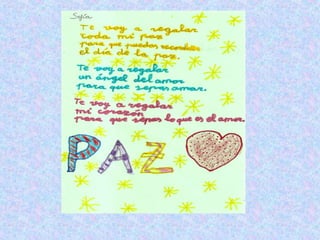 Sofía
Te voy a regalar
toda mi paz
para que puedas recordar
el día de la paz.
Te voy a regalar
un ángel del amor
para que sepas amar.
Te voy a regalar
mi corazón
para que sepas lo que es el amor.
PAZ